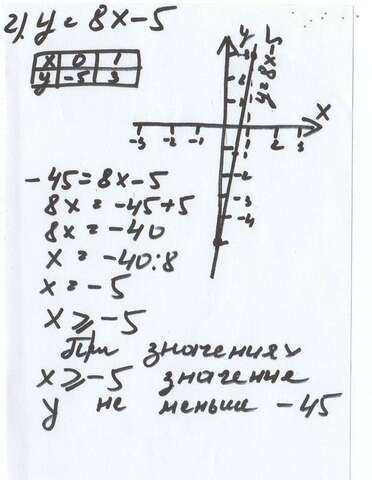 2). y = 8x-5
x 0 1
y -5 3
y
3
2
1
y = 8x-5
x
-3 -2 -1 1 2 3
-1
-2
-3
-4
-45 = 8x-5
8x = -45+5
8x = -40
x = -40:8
x = -5
x ⩾ -5
При значениях
x ⩾ -5 значение
y не меньше -45